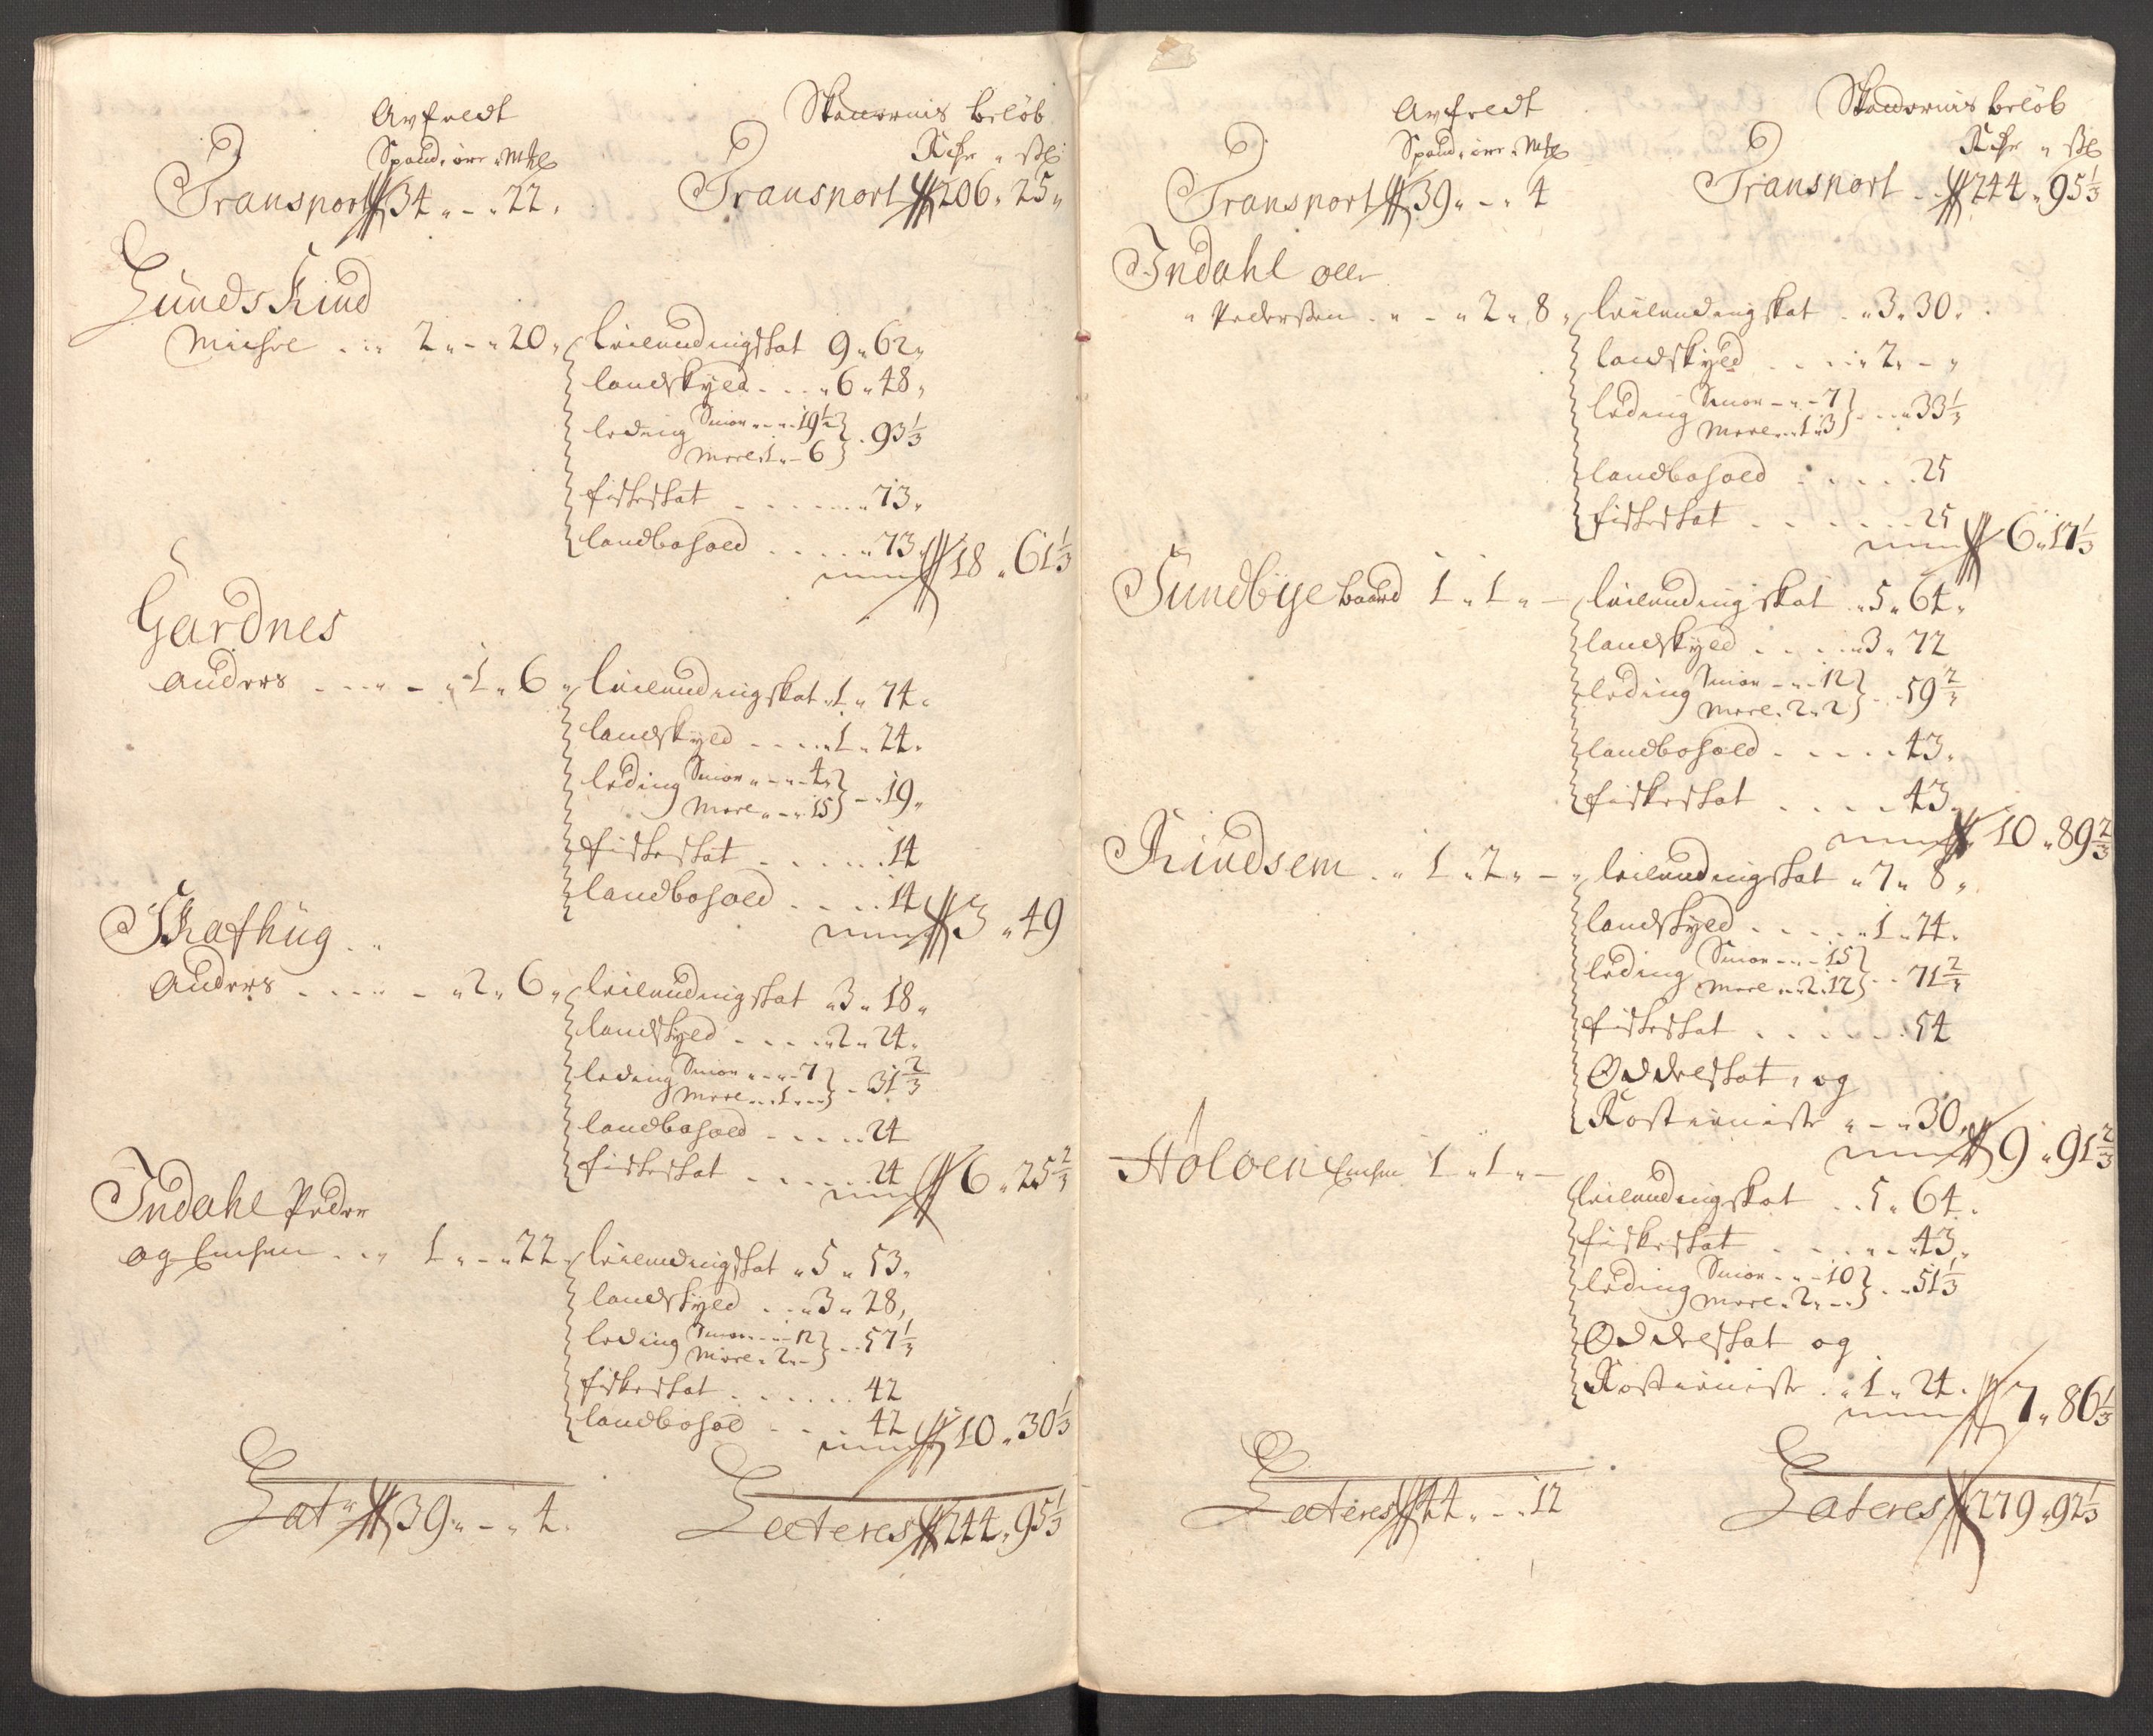 Avfældt
Skadernis beløb
Spand, øre, Mkl
Rdr „ ß
Transport 34 „ - „ 22 „
Transport 206 „ 25 „
Lunds Kind
Michel ... 2 „ - „ 20 „ leilendingskat 9 „ 62 „
landskyld ... 6 „ 48 „
leding Smør ... 19 1/2
Meel 1 „ - 6 . 93 1/3
fiskeskat ... 73 „
landbohold ... 73
18 „ 61 1/3
Gardnes
Anders ... - „ 1 „ 6 „ leilendingskat 1 „ 74 „
landskyld ... 1 „ 24 „
leding Smør ... 4
Meel ... 15 - „ 19 „
fiskeskat ... 14
landbohold ... 14
3 „ 49
Skafhug
Anders ... - „ 2 „ 6 „ leilendingskat 3 „ 18 „
landskyld ... 2 „ 24 „
leding Smør ... 7
Meel ... 1 - 31 2/3
landbohold ... 24
fiskeskat ... 24
6 „ 25 2/3
Indahl Peder
og Einsen ... 1 „ - „ 22 „ leilendingskat 5 „ 53 „
landskyld ... 3 „ 28 „
leding Smør ... 12
Meel „ 2 „ - 57 1/3
fiskeskat ... 42
landbohold ... 42
10 „ 30 1/3
Lat 39 „ - „ 4 .
Lateres 244 „ 95 1/3
Avfældt
Skadernis beløb
Spand, øre, Mkl
Rdr „ ß
Transport 39 „ - „ 4
Transport 244 „ 95 1/3
Indahl Olle
Pedersen „ - „ 2 „ 8 „ leilendingskat 3 „ 30 „
landskyld ... 2 „ - „
leding Smør - „ - 7
Meel „ 1 „ 3 ... 33 1/3
landbohold ... 25
fiskeskat ... 25
6 „ 17 1/3
Sundbye baard 1 „ 1 „ - leilendingskat 5 „ 64 „
landskyld ... 3 „ 72
leding Smør - „ - 12
Meel „ 2 „ 2 . 59 2/3
landbohold ... 43 „
fiskeskat ... 43
10 „ 89 2/3
Rindsem ... 1 „ 2 „ - leilendingskat 7 „ 8 „
landskyld ... 1 „ 24 „
leding Smør - „ - 15
Meel „ 2 „ 12 . 71 2/3
fiskeskat ... 54
Oddelskat, og
Rostieniste „ - „ 30 „
9 „ 91 2/3
Holoen 1 „ 1 „ -
leilendingskat .. 5 „ 64 .
fiskeskat ... 43 „
leding Smør - „ - 10
Meel „ 2 „ - . 51 1/3
Oddelskat og
Rostieniste „ 1 „ 24 „
7 „ 86 1/3
Lateres 44 „ - „ 12
Lateres 279 „ 92 1/3